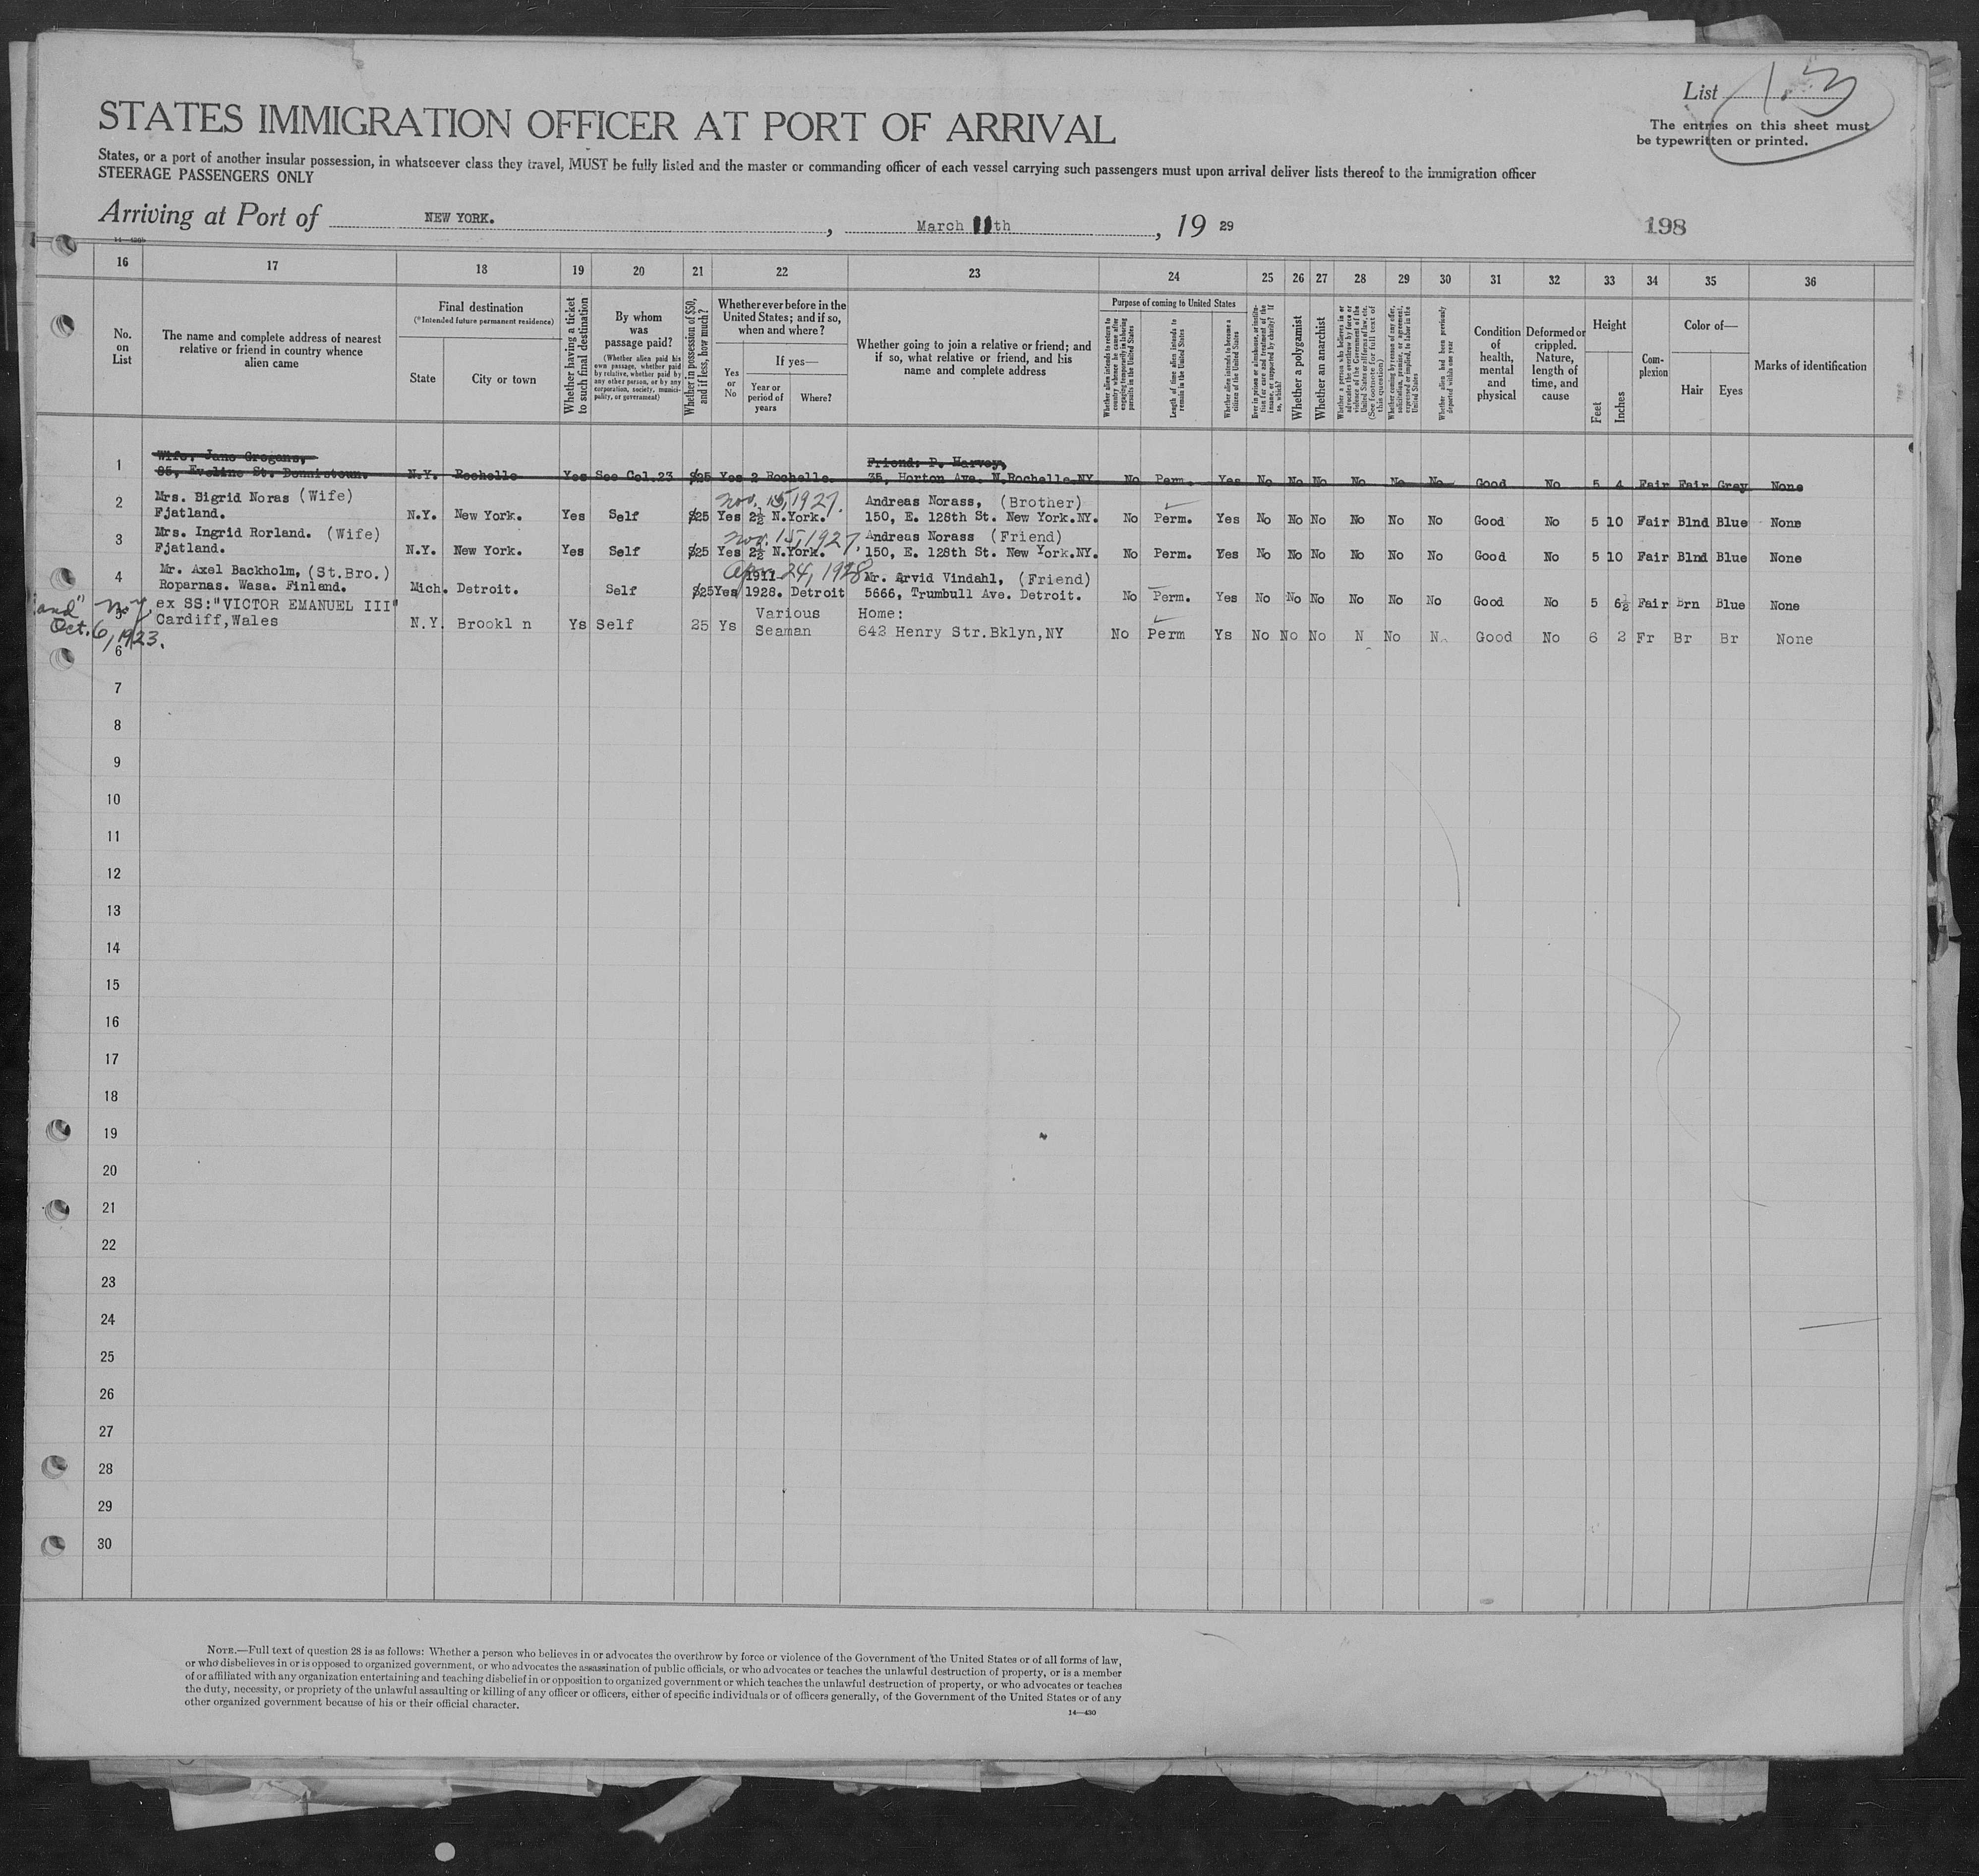 List 13
The entries on this sheet must
be typewritten or printed.
STATES IMMIGRATION OFFICER AT PORT OF ARRIVAL
States, or a port of another insular possession, in whatsoever class they travel, MUST be fully listed and the master or commanding officer of each vessel carrying such passengers must upon arrival deliver lists thereof to the immigration officer
STEERAGE PASSENGERS ONLY
Arriving at Port of NEW YORK. , March 11th , 19 29
198
16 17 18 19 20 21 22 23 24 25 26 27 28 29 30 31 32 33 34 35 36
No. on List
The name and complete address of nearest relative or friend in country whence alien came
Final destination
(*Intended future permanent residence)
State
City or town
Whether having a ticket to such final destination
By whom was passage paid?
(Whether alien paid his own passage, whether paid by relative, whether paid by any other person, or by any corporation, society, municipality, or government)
Whether in possession of $50, and if less, how much?
Whether ever before in the United States; and if so, when and where?
Yes or No
If yes—
Year or period of years
Where?
Whether going to join a relative or friend; and if so, what relative or friend, and his name and complete address
Purpose of coming to United States
Whether alien intends to return to country whence he came after engaging temporarily in laboring pursuits in the United States
Length of time alien intends to remain in the United States
Whether alien intends to become a citizen of the United States
Ever in prison or almshouse, or institution for care and treatment of the insane, or supported by charity? If so, which?
Whether a polygamist
Whether an anarchist
Whether a person who believes in or advocates the overthrow by force or violence of the Government of the United States or all forms of law, etc. (See footnote for full text of this question)
Whether coming by reason of any offer, solicitation, promise, or agreement, expressed or implied, to labor in the United States
Whether alien had been previously deported within one year
Condition of health, mental and physical
Deformed or crippled. Nature, length of time, and cause
Height
Feet
Inches
Complexion
Color of—
Hair
Eyes
Marks of identification
1 Wife, Jane Grogans,
85, Eveline St. Dennistoun. N.Y. Rochelle Yes See Col.23 $25 Yes 2 Rochelle. Friend: P. Harvey, 35, Horton Ave. N.Rochelle.NY No Perm. Yes No No No No No No Good No 5 4 Fair Fair Gray None
2 Mrs. Bigrid Noras (Wife) Nov. 15, 1927. Andreas Norass, (Brother)
Fjatland. N.Y. New York. Yes Self $25 Yes 2½ N.York. 150, E. 128th St. New York.NY. No Perm. Yes No No No No No No Good No 5 10 Fair Blnd Blue None
3 Mrs. Ingrid Rorland. (Wife) Nov. 15, 1927. Andreas Norass (Friend)
Fjatland. N.Y. New York. Yes Self $25 Yes 2½ N.York. 150, E. 128th St. New York.NY. No Perm. Yes No No No No No No Good No 5 10 Fair Blnd Blue None
4 Mr. Axel Backholm, (St.Bro.) 1911- Apr 24, 1928 Mr. Arvid Vindahl, (Friend)
Roparnas. Wasa. Finland. Mich. Detroit. Self $25 Yes 1928. Detroit 5666, Trumbull Ave. Detroit. No Perm. Yes No No No No No No Good No 5 6½ Fair Brn Blue None
"and" N.Y. Oct. 6, 1923.
5 ex SS:"VICTOR EMANUEL III" Various Home:
Cardiff,Wales N.Y. Brookl n Ys Self 25 Ys Seaman 642 Henry Str.Bklyn,NY No Perm Ys No No No N No N Good No 6 2 Fr Br Br None
6
7
8
9
10
11
12
13
14
15
16
17
18
19
20
21
22
23
24
25
26
27
28
29
30
NOTE.—Full text of question 28 is as follows: Whether a person who believes in or advocates the overthrow by force or violence of the Government of the United States or of all forms of law,
or who disbelieves in or is opposed to organized government, or who advocates the assassination of public officials, or who advocates or teaches the unlawful destruction of property, or is a member
of or affiliated with any organization entertaining and teaching disbelief in or opposition to organized government or which teaches the unlawful destruction of property, or who advocates or teaches
the duty, necessity, or propriety of the unlawful assaulting or killing of any officer or officers, either of specific individuals or of officers generally, of the Government of the United States or of any
other organized government because of his or their official character.
14—430